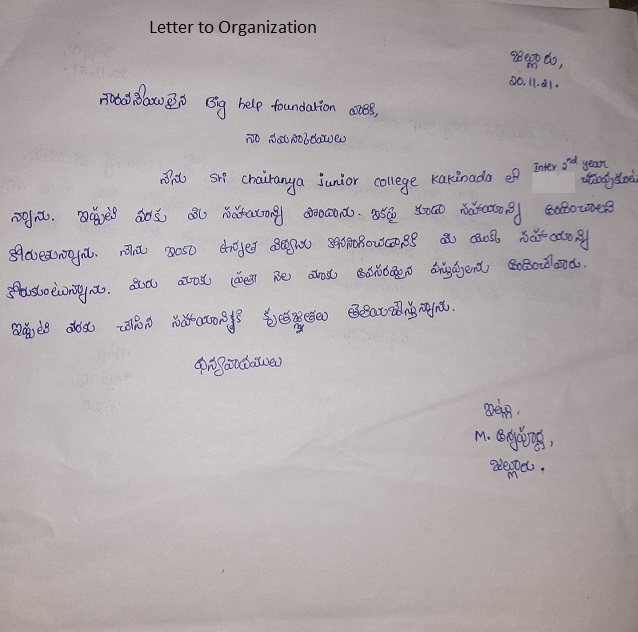 Letter to Organization
జిల్లూరు,
20.11.21.
గౌరవనీయులైన Big help foundation వారికి,
నా నమస్కారములు
నేను Sri Chaitanya junior college kakinada లో Inter 2nd year చదువుకుంటు
న్నాను. ఇప్పటి వరకు మీ సహాయాన్ని పొందాను. ఇకపై కూడా సహాయాన్ని అందించాలని
కోరుతున్నాను. నేను ఇంకా ఉన్నత విద్యలు కొనసాగించడానికి మీ యొక్క సహాయాన్ని
కోరుకుంటున్నాను. మీరు మాకు ప్రతి నెల మాకు అవసరమైన వస్తువులను అందించేవారు.
ఇప్పటి వరకు చేసిన సహాయానికి కృతజ్ఞతలు తెలియజేస్తున్నాను.
ధన్యవాదములు
ఇట్లు,
M. అన్నపూర్ణ,
జిల్లూరు.